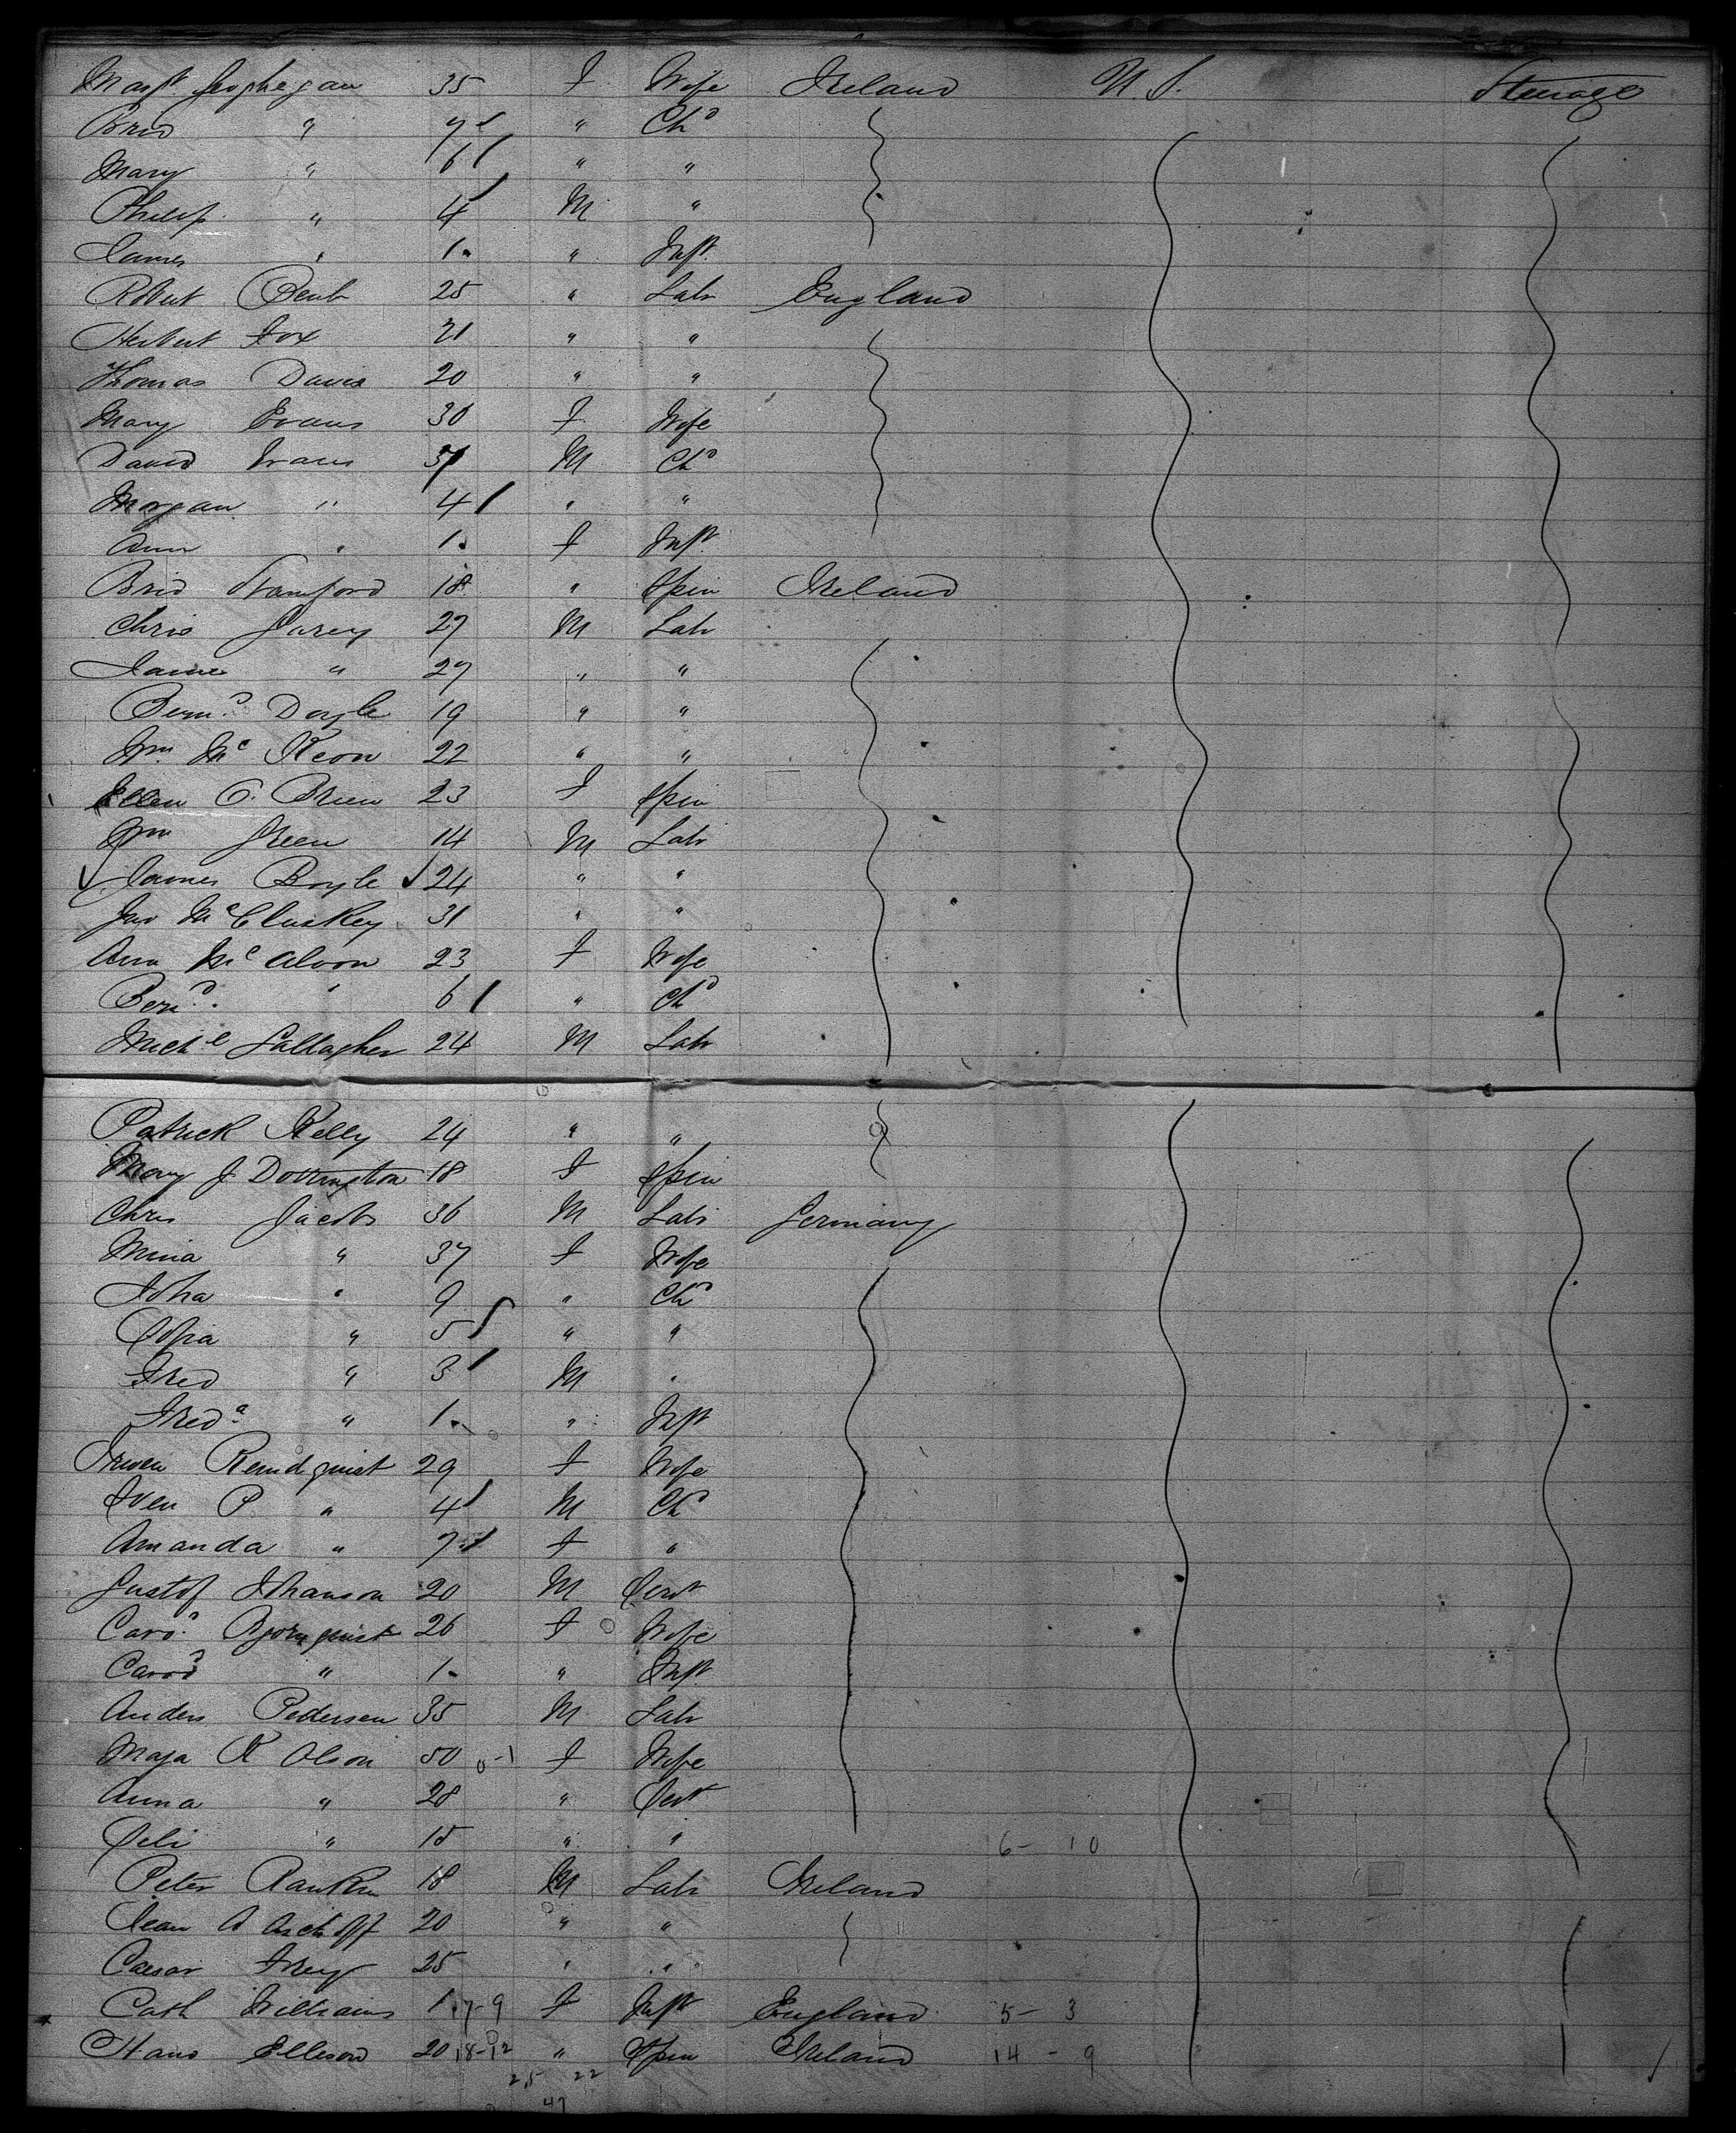 Margt Geoghegan 35 F Wife Ireland U.S. Steerage
Brid " 7 " Chd
Mary " 6 " "
Philip " 4 M "
James " 1 " Inft
Robert 25 " Labr England
Herbert Fox 21 " "
Thomas Davis 20 " "
Mary Evans 30 F Wife
David Evans M Chd
Morgan " 4 " "
Ann " 1 F Inft
Brid Stamford 18 " Spin Ireland
Chris Carey 27 M Labr
James " 27 " "
Bernd Doyle 19 " "
Wm McKeon 22 " "
Ellen O'Brien 23 F Spin
Wm Green 14 M Labr
James Boyle 24 " "
Jno McCluskey 31 " "
Ann McAloon 23 F Wife
Bernd " 6 " Chd
Michl Gallagher 24 M Labr
Patrick Kelly 24 " "
Mary J Dorrington 18 F Spin
Chris Jacobs 36 M Labr Germany
Mina " 37 F Wife
Joha " 9 " Chd
Sofia " 5 " "
Fred " 3 M "
Freda " 1 " Inft
Rendquist 29 F Wife
Sven P " 4 M Chd
Amanda " 7 F "
Gustof Johanson 20 M Servt
Caro Bjornquist 26 F Wife
" 1 " Inft
Anders Pedersen 35 M Labr
Maja K Olson 50 0-1 F Wife
Anna " 28 " Servt
" 15 " " 6- 10
Peter Rankin 18 M Labr Ireland
Jean A Aschoff 20 " "
Caesar Frey 25 " "
Cath Williams 1 7-9 F Inft England 5- 3
Hans Elleson 20 18-12 " Spin Ireland 14 - 9
25 22
47